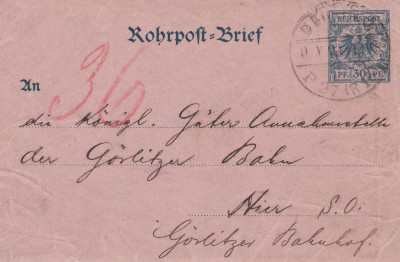 Rohrpost-Brief
REICHSPOST
PF. 30 PF.
36
An
die Königl. Güter Annahmestelle
der Görlitzer Bahn
Hier S.O.
Görlitzer Bahnhof.